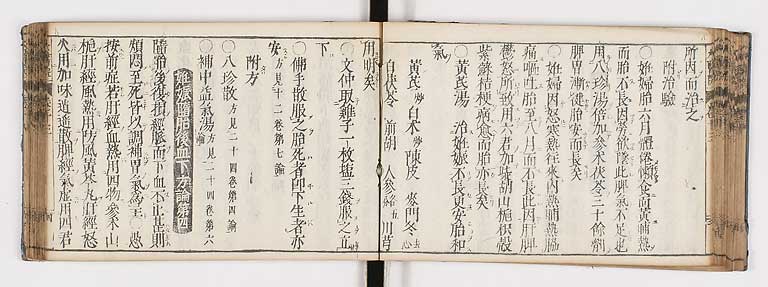 所因而治之
附治驗
○妊婦胎六月體倦懶食面黃晡熱
而胎不長因勞欲墜此脾氣不足也
用八珍湯倍加參朮茯苓三十餘劑
脾胃漸健胎安而長矣
○妊婦因怒寒熱往來內熱晡熱脇
痛嘔吐胎至八月而不長此因肝脾
鬱怒所致用六君加柴胡山梔枳殼
紫蘇桔梗病愈而胎亦長矣
○黃芪湯 治妊娠不長更安胎和
氣
黃芪 炒 白朮 炒 陳皮 麥門冬 去心
白茯苓 前胡 人參 各五 川芎
用
○文仲取雞子一枚塩三錢服之立
下
○佛手散服之胎死者卽下生者亦
安 方見十二卷第七論
附方
○八珍散 方見二十四卷第四論
○補中益氣湯 方見二十四卷第六
妊娠墮胎後血下方論第四
墮胎後復損經脈而下血不止甚則
煩悶至死皆以調補胃氣爲主 愚
按前症若肝經血熱用四物參朮山
梔肝經風熱用防風黃芩丸肝經怒
火用加味逍遙散脾經氣虛用四君